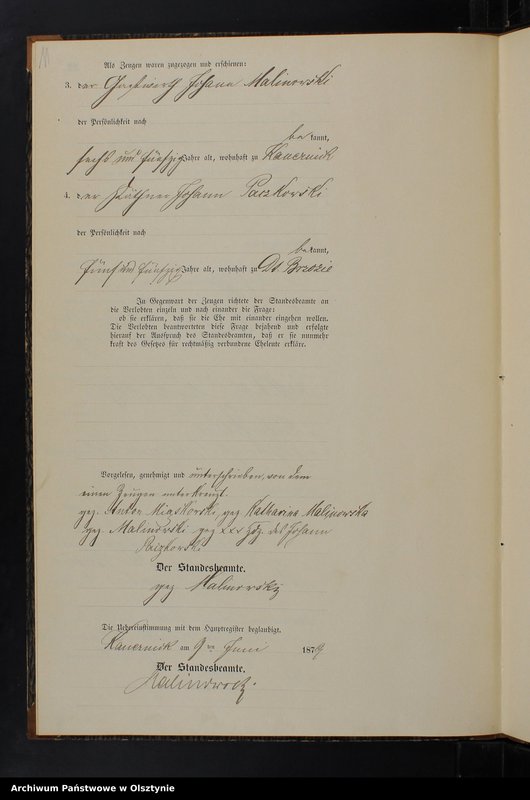 11
Als Zeugen waren zugezogen und erschienen:
3. der Gastwirth Johann Malinowski
der Persönlichkeit nach
be kannt,
sechs und fünfzig Jahre alt, wohnhaft zu Kauernick
4. der Käthner Johann Paczkowski
der Persönlichkeit nach
be kannt,
fünf und fünfzig Jahre alt, wohnhaft zu Dt. Brzozie
In Gegenwart der Zeugen richtete der Standesbeamte an
die Verlobten einzeln und nach einander die Frage:
ob sie erklären, daß sie die Ehe mit einander eingehen wollen.
Die Verlobten beantworteten diese Frage bejahend und erfolgte
hierauf der Ausspruch des Standesbeamten, daß er sie nunmehr
kraft des Gesetzes für rechtmäßig verbundene Eheleute erkläre.
Vorgelesen, genehmigt und unterschrieben, von dem
einen Zeugen unterkreuzt.
gez. Anton gez. Katharina Malinowska
gez. Malinowski gez xxx Hdz. des Johann
Paczkowski
Der Standesbeamte.
gez Malinowsky
Die Uebereinstimmung mit dem Hauptregister beglaubigt.
Kauernick am 9ten Juni 1879
Der Standesbeamte.
Malinowsky.
Archiwum Państwowe w Olsztynie